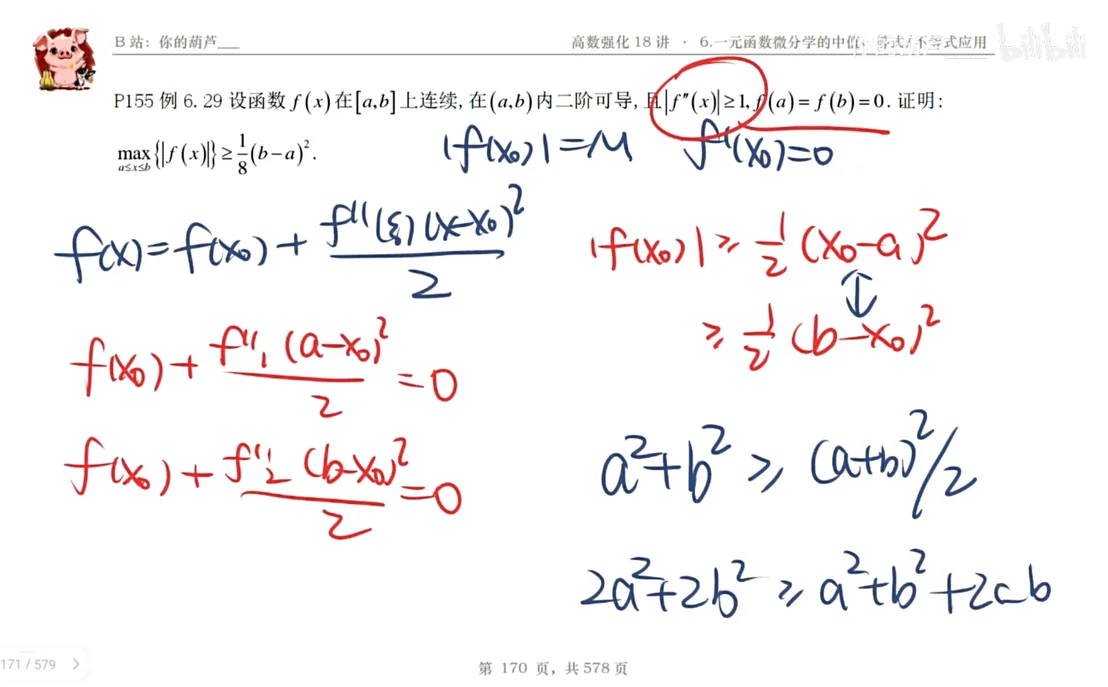 B站：你的葫芦___
高数强化18讲 · 6.一元函数微分学的中值、等式/不等式应用
bilibili
P155 例 6.29 设函数 f(x) 在 [a,b] 上连续, 在 (a,b) 内二阶可导, 且 |f''(x)| ≥ 1, f(a) = f(b) = 0. 证明:
max_{a≤x≤b}{|f(x)|} ≥ 1/8 (b−a)².
|f(x₀)| = M f'(x₀)=0
f(x) = f(x₀) + f''(ξ)(x−x₀)²/2
f(x₀) + f''₁(a−x₀)²/2 = 0
f(x₀) + f''₂(b−x₀)²/2 = 0
|f(x₀)| ≥ 1/2 (x₀−a)²
↕
≥ 1/2 (b−x₀)²
a²+b² ≥ (a+b)²/2
2a²+2b² ≥ a²+b²+2ab
171 / 579 >
第 170 页，共 578 页